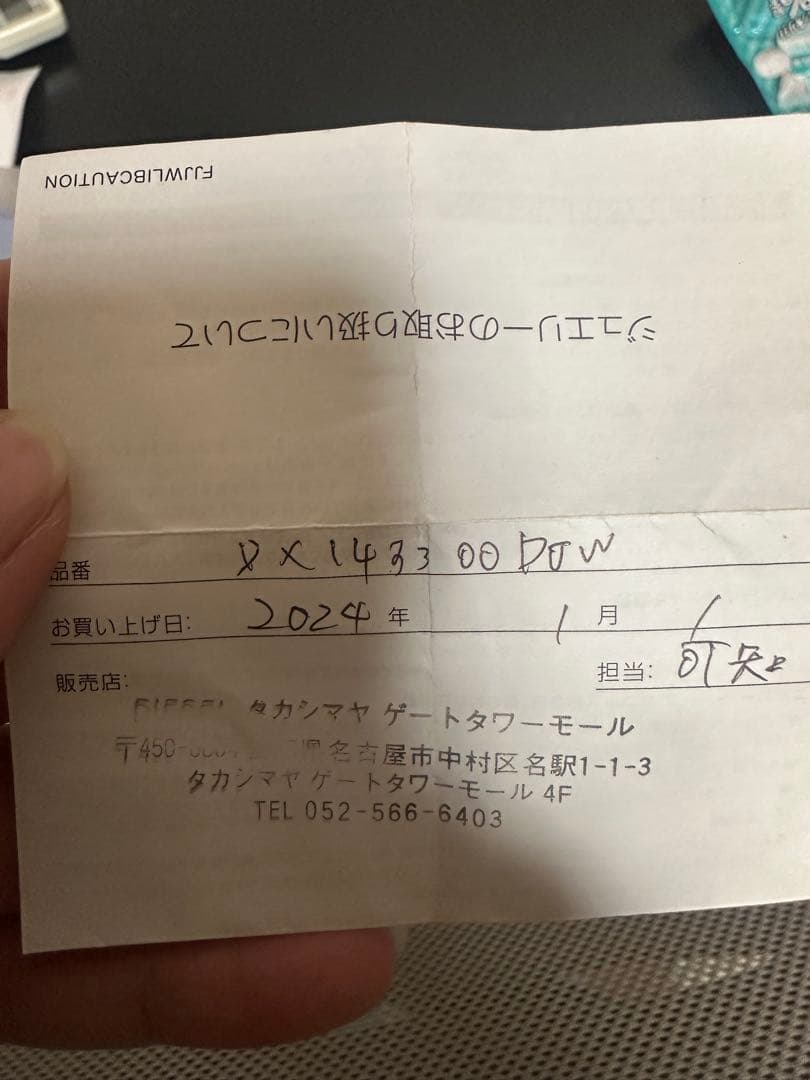 FJJWLIBCAUTION
ジュエリーのお取り扱いについて
品番 DX1433 00DJW
お買い上げ日: 2024 年 1 月 1
販売店: 担当: 可知
DIESEL タカシマヤ ゲートタワーモール
〒450- 県名古屋市中村区名駅1-1-3
タカシマヤ ゲートタワーモール 4F
TEL 052-566-6403